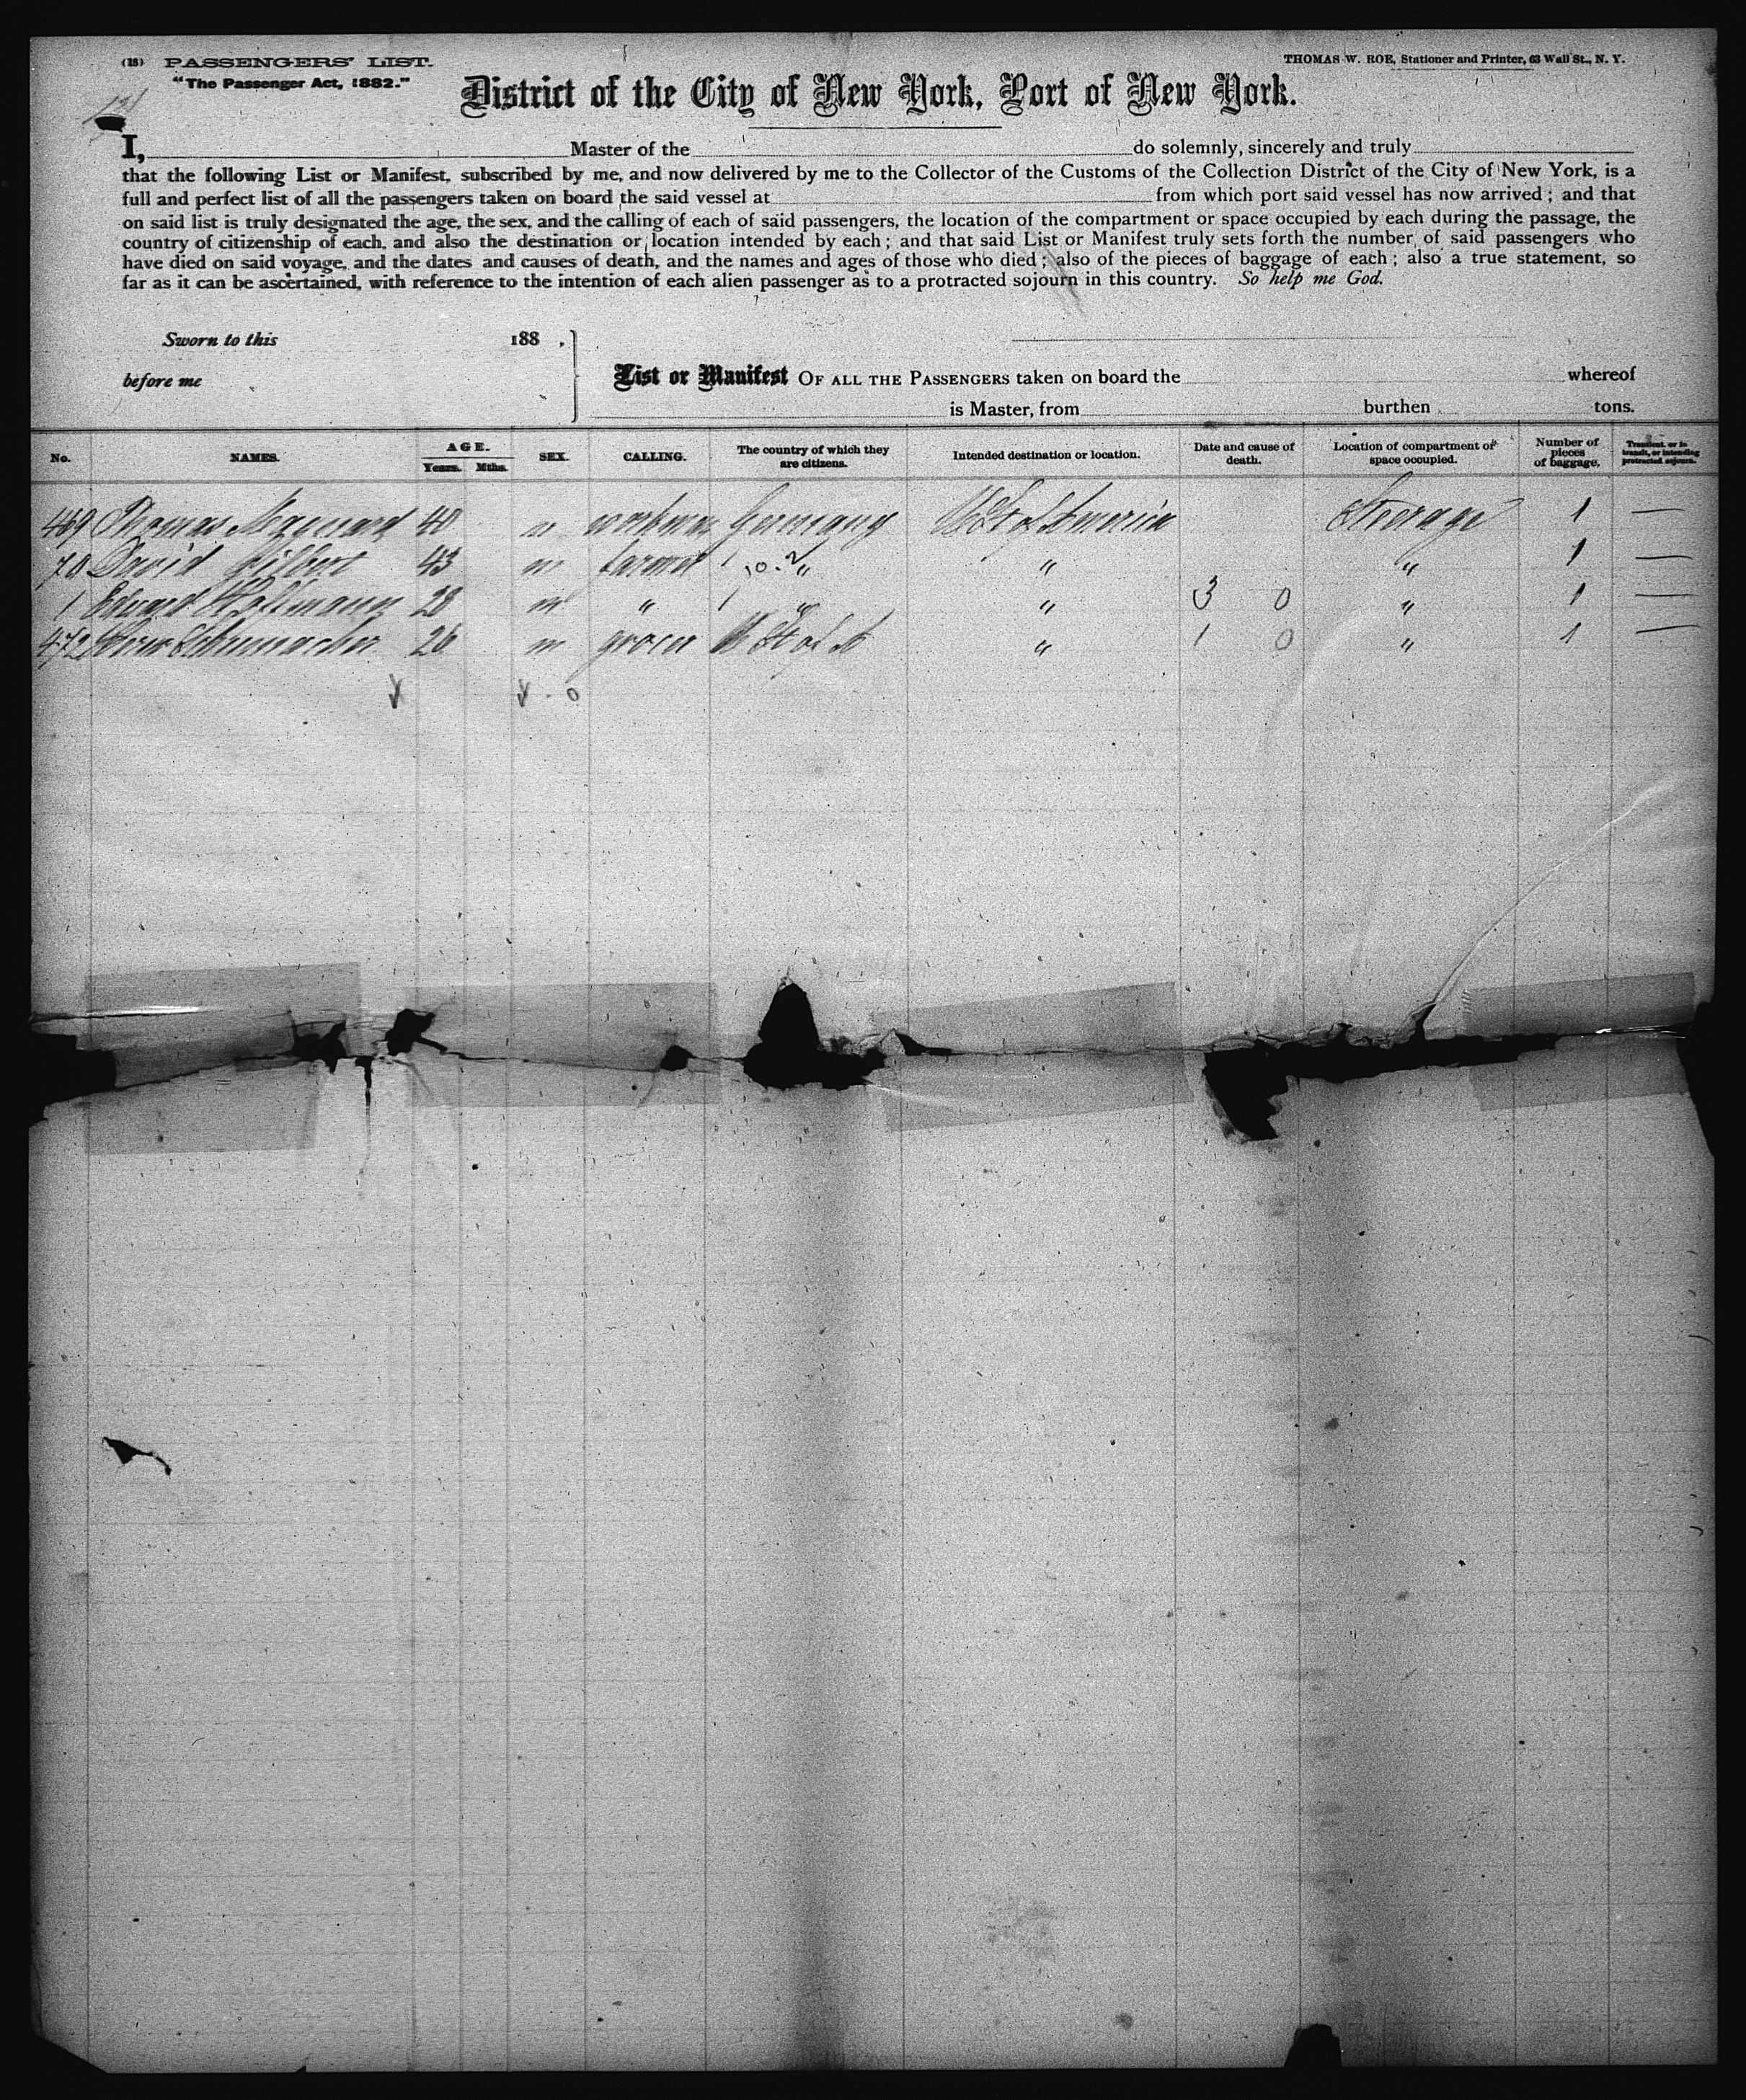 (18) PASSENGERS' LIST.
THOMAS W. ROE, Stationer and Printer, 63 Wall St., N. Y.
"The Passenger Act, 1882."
District of the City of New York, Port of New York.
I, Master of the do solemnly, sincerely and truly
that the following List or Manifest, subscribed by me, and now delivered by me to the Collector of the Customs of the Collection District of the City of New York, is a
full and perfect list of all the passengers taken on board the said vessel at from which port said vessel has now arrived; and that
on said list is truly designated the age, the sex, and the calling of each of said passengers, the location of the compartment or space occupied by each during the passage, the
country of citizenship of each, and also the destination or location intended by each; and that said List or Manifest truly sets forth the number of said passengers who
have died on said voyage, and the dates and causes of death, and the names and ages of those who died; also of the pieces of baggage of each; also a true statement, so
far as it can be ascertained, with reference to the intention of each alien passenger as to a protracted sojourn in this country. So help me God.
Sworn to this 188 .
before me
List or Manifest OF ALL THE PASSENGERS taken on board the whereof
is Master, from burthen tons.
No. NAMES. AGE. Years. Mths. SEX. CALLING. The country of which they are citizens. Intended destination or location. Date and cause of death. Location of compartment or space occupied. Number of pieces of baggage. Transient, or in transit, or intending protracted sojourn.
469 Thomas 40 m workman Germany U St of America Steerage 1 —
70 David Gilbert 43 m farmer " " " 1 —
1 Edward 28 m " " " 3 0 " 1 —
472 Schumacher 26 m grocer U St of A " 1 0 " 1 —